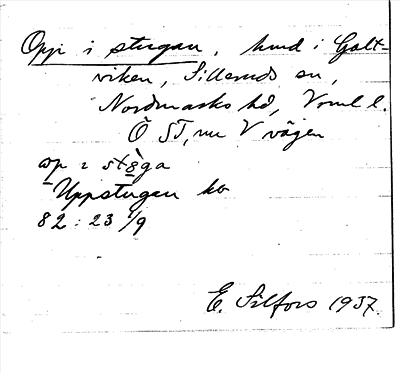 Oppi stugan, hmd i Galt-
viken, Sillerud sn,
Nordmarks hd, Vrml l.
Ö ST, nu V vägen
op i st
Uppstugan ko
82:23 1/9
E. Silfors 1937.